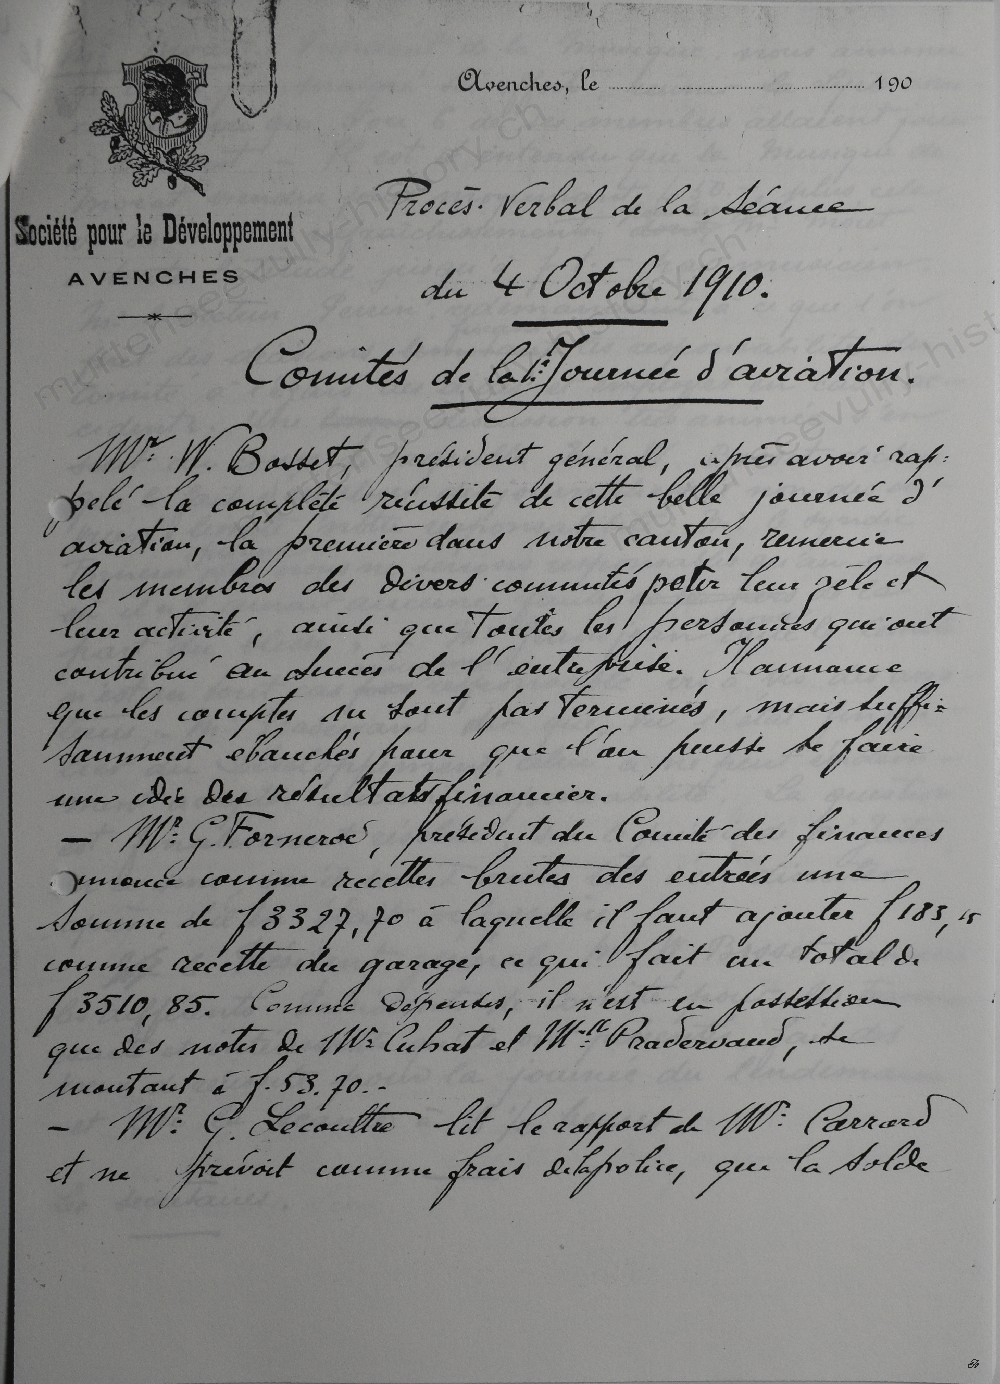 Avenches, le 190
Société pour le Développement
AVENCHES
Procès-Verbal de la Séance
du 4 Octobre 1910.
Comités de la 1re Journée d'aviation.
Mr. W. Bosset, président général, après avoir rap-
pelé la complète réussite de cette belle journée d'
aviation, la première dans notre canton, remercie
les membres des divers comités pour leur zèle et
leur activité, ainsi que toutes les personnes qui ont
contribué au succès de l'entreprise. Il annonce
que les comptes ne sont pas terminés, mais suffi-
samment ébauchés pour que l'on puisse se faire
une idée des résultats financier.
— Mr. G. Fornerod, président du Comité des finances
annonce comme recettes brutes des entrées une
somme de f 3327,70 à laquelle il faut ajouter f 183,15
comme recette du garage, ce qui fait un total de
f 3510,85. Comme dépenses, il n'est en possession
que des notes de Mr. Cuhat et Mr. Pradervand, se
montant à f. 53.70.-
— Mr. G. Lecoultre lit le rapport de Mr. Carrard
et ne prévoit comme frais de la police, que la solde